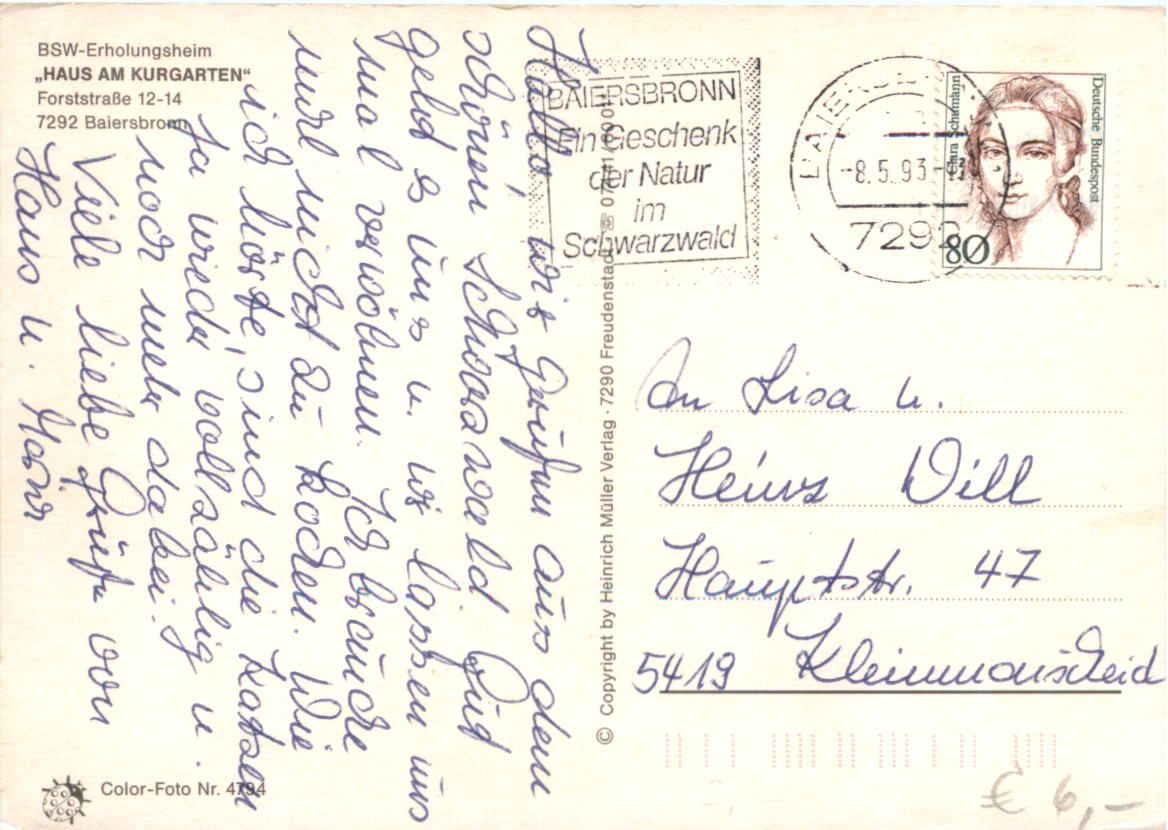 BSW-Erholungsheim
„HAUS AM KURGARTEN“
Forststraße 12-14
7292 Baiersbronn
Hallo, wir grüßen aus dem
schönen Schwarzwald. Gut
geht es uns u. wir lassen uns
mal verwöhnen. Ich brauche
mal nicht zu kochen. Wie
ich hörte, sind die Katzen
ja wieder vollzählig u.
noch mehr dabei.
Viele liebe Grüße von
Hans u.
© Copyright by Heinrich Müller Verlag · 7290 Freudenstadt
BAIERSBRONN
Ein Geschenk
der Natur
im
Schwarzwald
BAIERSBRONN
-8.5.93-
7292
Clara Schumann
Deutsche Bundespost
80
An Lisa u.
Heinz Will
Hauptstr. 47
5419 Kleinmaischeid
Color-Foto Nr. 4794
€ 6,-